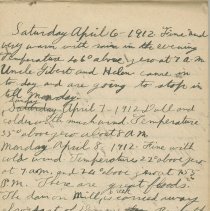 Saturday April 6 - 1912 Fine and
very warm with rain in the evening
Temperature 46° above zero at 7 A.M.
Uncle Gilbert and Helen came on
to day and are going to stop in
till Monday
Sunday April 7 - 1912 Dull and
colder with much wind. Temperature
35° above zero about 8 A.M.
Monday April 8, 1912. Fine with
cold wind Temperature 22° above zero
at 7 a.m. and
P.M. There are great floods.
The dam on is carried away